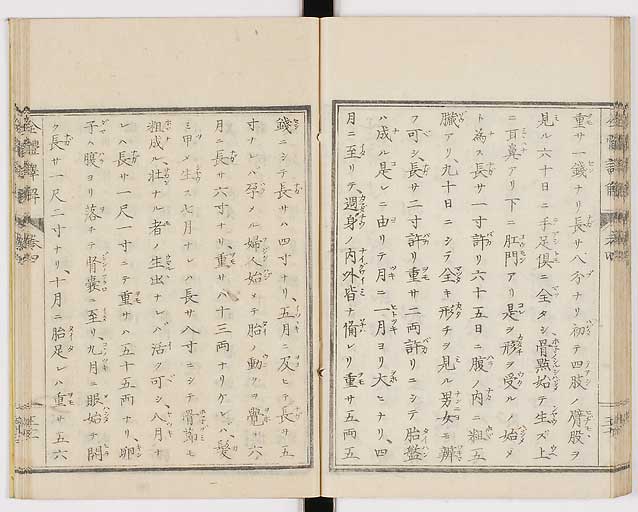 重サ一錢ナリ長サ八分ナリ初テ四肢ノ臂股ヲ
見ル六十日ニ手足俱ニ全タシ骨點始テ生ズ上
ニ耳鼻アリ下ニ肛門アリ是ヲ形ヲ受ルノ始メ
ト為ス長サ一寸許リ六十五日ニ腹ノ内ニ粗五
臓アリ、九十日ニシテ全キ形チヲ見ル男女モ辨
フ可シ、長サ二寸許リ重サ二兩許リニシテ胎盤
ハ成ル是レニ由リテ月ニ一月ヨリ大ヒナリ、四
月ニ至リテ、週身ノ内外皆ナ備レリ重サ五兩五
錢ニシテ長サハ四寸ナリ、五月ニ及ヒテ長サ五
寸ナレバ孕メル婦人始メテ胎ノ動クヲ覺ユ六
月ニ長サ六寸ナリ、重サハ十三兩ナリケレバ、髮
ミ甲メ生ス七月ナレバ長サ八寸ニシテ骨節モ
粗成ル、壯ナル者ノ生出ナレバ活ク可シ、八月ナ
レハ長サ一尺一寸ニテ重サハ五十五兩ナリ、卵
子ハ腹ヨリ落チテ腎囊ニ至リ、九月ニ眼始テ開
ク長サ一尺二寸ナリ、十月ニ胎足レハ重サ五六
全體譯解 卷四